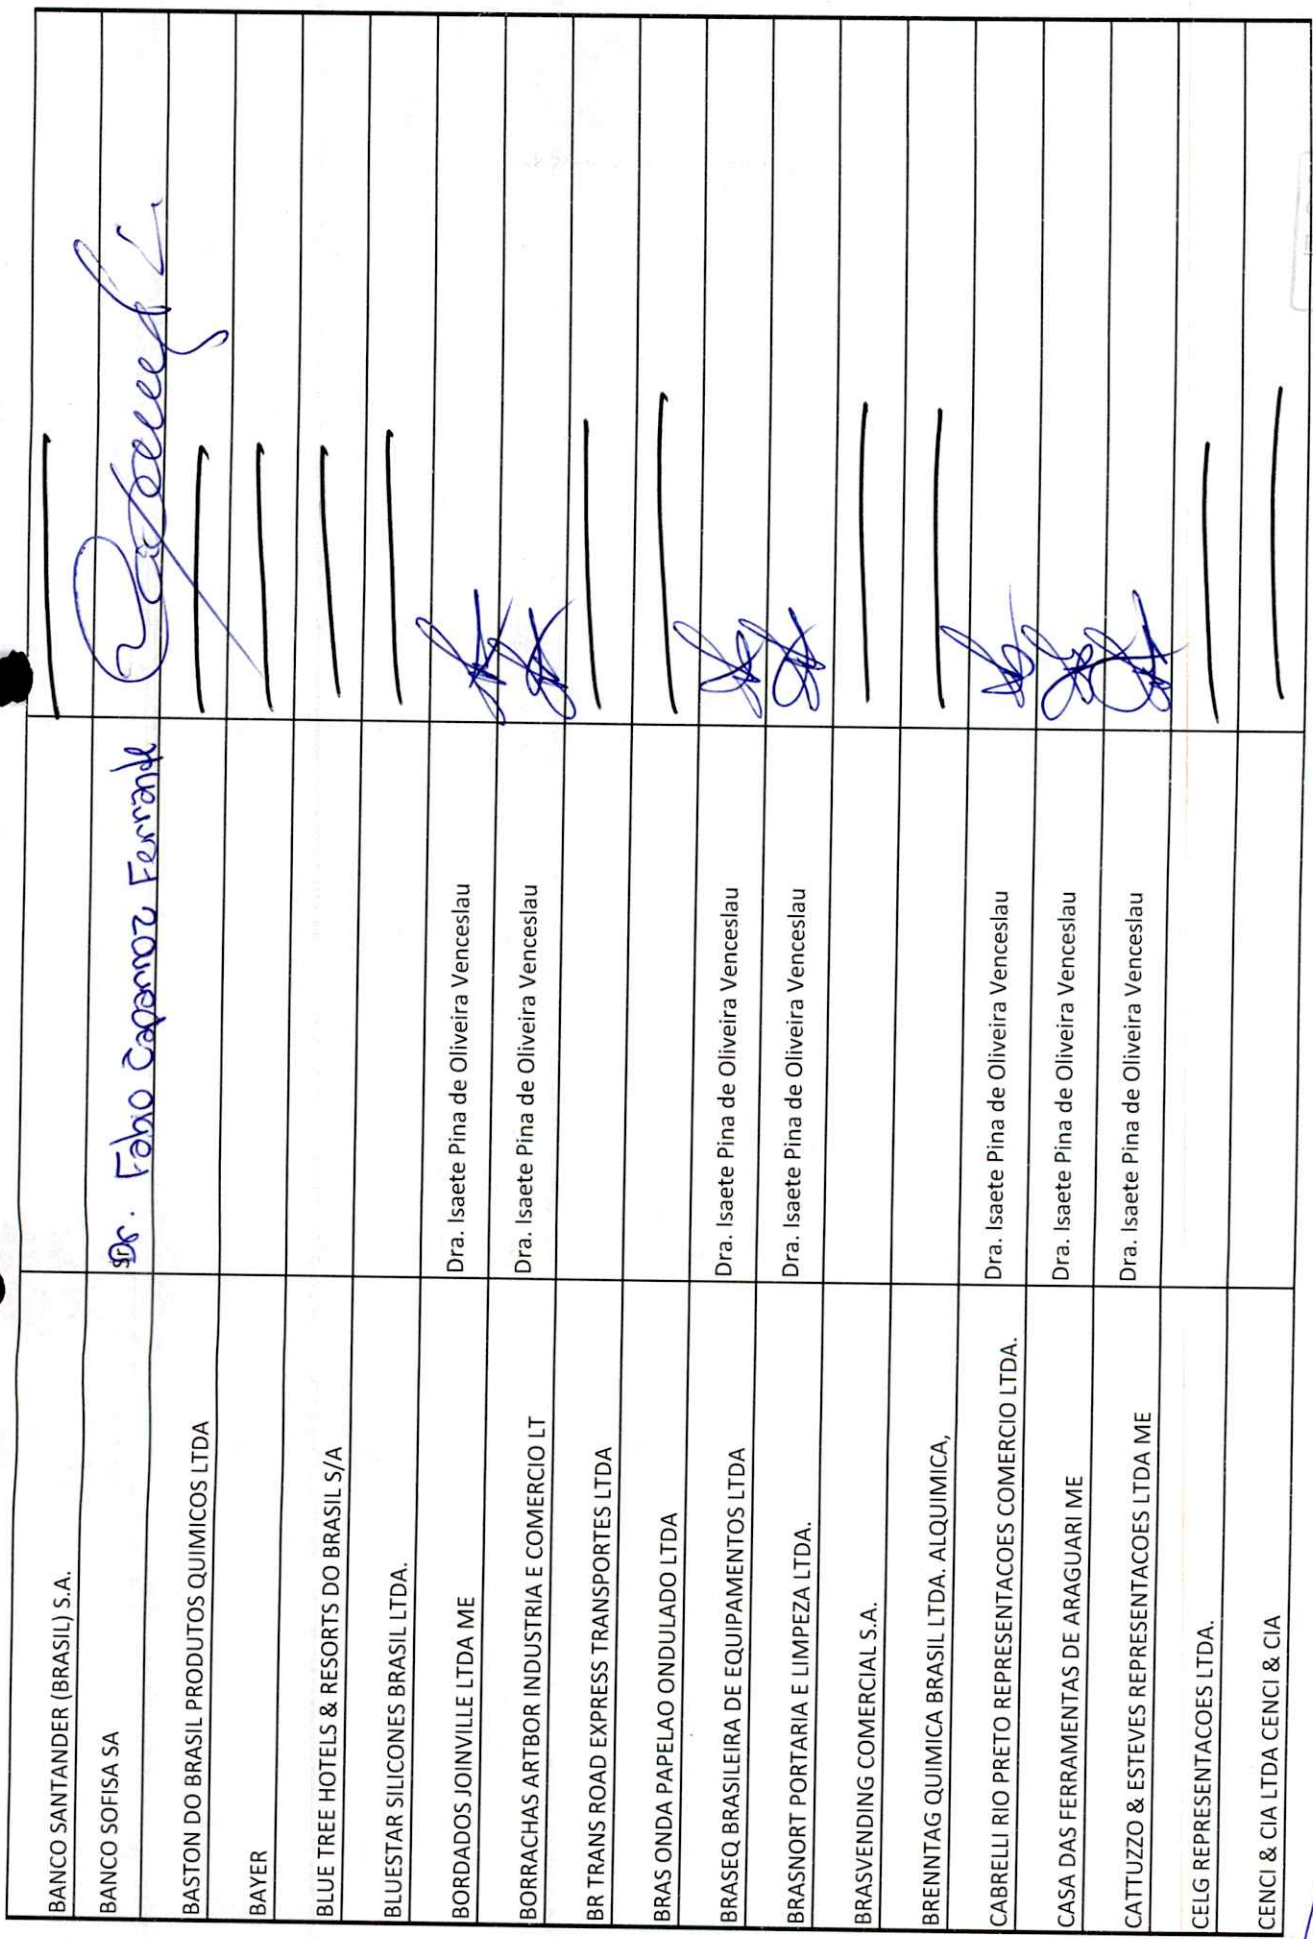 BANCO SANTANDER (BRASIL) S.A.
BANCO SOFISA SA Dr. Fabio Caparroz Ferrante
BASTON DO BRASIL PRODUTOS QUIMICOS LTDA
BAYER
BLUE TREE HOTELS & RESORTS DO BRASIL S/A
BLUESTAR SILICONES BRASIL LTDA.
BORDADOS JOINVILLE LTDA ME Dra. Isaete Pina de Oliveira Venceslau
BORRACHAS ARTBOR INDUSTRIA E COMERCIO LT Dra. Isaete Pina de Oliveira Venceslau
BR TRANS ROAD EXPRESS TRANSPORTES LTDA
BRAS ONDA PAPELAO ONDULADO LTDA
BRASEQ BRASILEIRA DE EQUIPAMENTOS LTDA Dra. Isaete Pina de Oliveira Venceslau
BRASNORT PORTARIA E LIMPEZA LTDA. Dra. Isaete Pina de Oliveira Venceslau
BRASVENDING COMERCIAL S.A.
BRENNTAG QUIMICA BRASIL LTDA. ALQUIMICA,
CABRELLI RIO PRETO REPRESENTACOES COMERCIO LTDA. Dra. Isaete Pina de Oliveira Venceslau
CASA DAS FERRAMENTAS DE ARAGUARI ME Dra. Isaete Pina de Oliveira Venceslau
CATTUZZO & ESTEVES REPRESENTACOES LTDA ME Dra. Isaete Pina de Oliveira Venceslau
CELG REPRESENTACOES LTDA.
CENCI & CIA LTDA CENCI & CIA